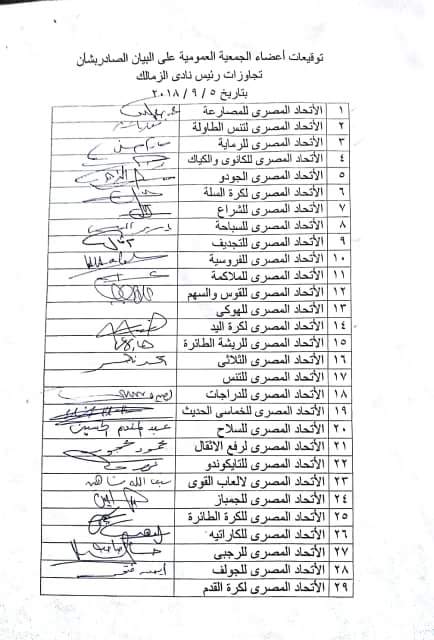 توقيعات أعضاء الجمعية العمومية على البيان الصادربشأن
تجاوزات رئيس نادى الزمالك
بتاريخ ٥ / ٩ / ٢٠١٨
١ الأتحاد المصرى للمصارعة
٢ الأتحاد المصرى لتنس الطاولة
٣ الأتحاد المصرى للرماية
٤ الأتحاد المصرى للكانوى والكياك
٥ الأتحاد المصرى الجودو
٦ الأتحاد المصرى لكرة السلة
٧ الأتحاد المصرى للشراع
٨ الأتحاد المصرى للسباحة
٩ الأتحاد المصرى للتجديف
١٠ الأتحاد المصرى للفروسية
١١ الأتحاد المصرى للملاكمة
١٢ الأتحاد المصرى للقوس والسهم
١٣ الأتحاد المصرى للهوكى
١٤ الأتحاد المصرى لكرة اليد
١٥ الأتحاد المصرى للريشة الطائرة
١٦ الأتحاد المصرى الثلاثى
١٧ الأتحاد المصرى للتنس
١٨ الأتحاد المصرى للدراجات
١٩ الأتحاد المصرى للخماسى الحديث
٢٠ الأتحاد المصرى للسلاح عبد المنعم الحسيني
٢١ الأتحاد المصرى لرفع الاثقال محمود محجوب
٢٢ الأتحاد المصرى للتايكوندو
٢٣ الأتحاد المصرى لالعاب القوى
٢٤ الأتحاد المصرى للجمباز
٢٥ الأتحاد المصرى للكرة الطائرة
٢٦ الأتحاد المصرى للكاراتيه
٢٧ الأتحاد المصرى للرجبى
٢٨ الأتحاد المصرى للجولف
٢٩ الأتحاد المصرى لكرة القدم